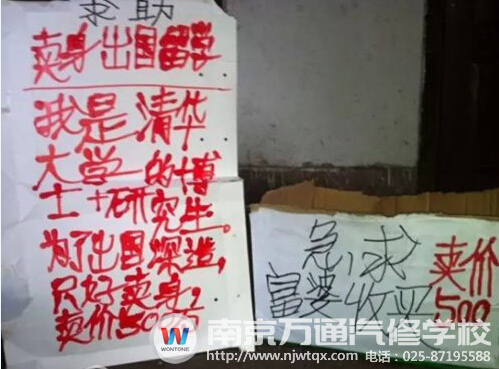 求助
卖身出国留学
我是清华
大学的博
士+研究生。
为了出国深造,
只好卖身,
卖价500万
急求
富婆收
卖价
500
WONTONE
南京万通汽修学校
http://www.njwtqx.com 电话:025-87195588